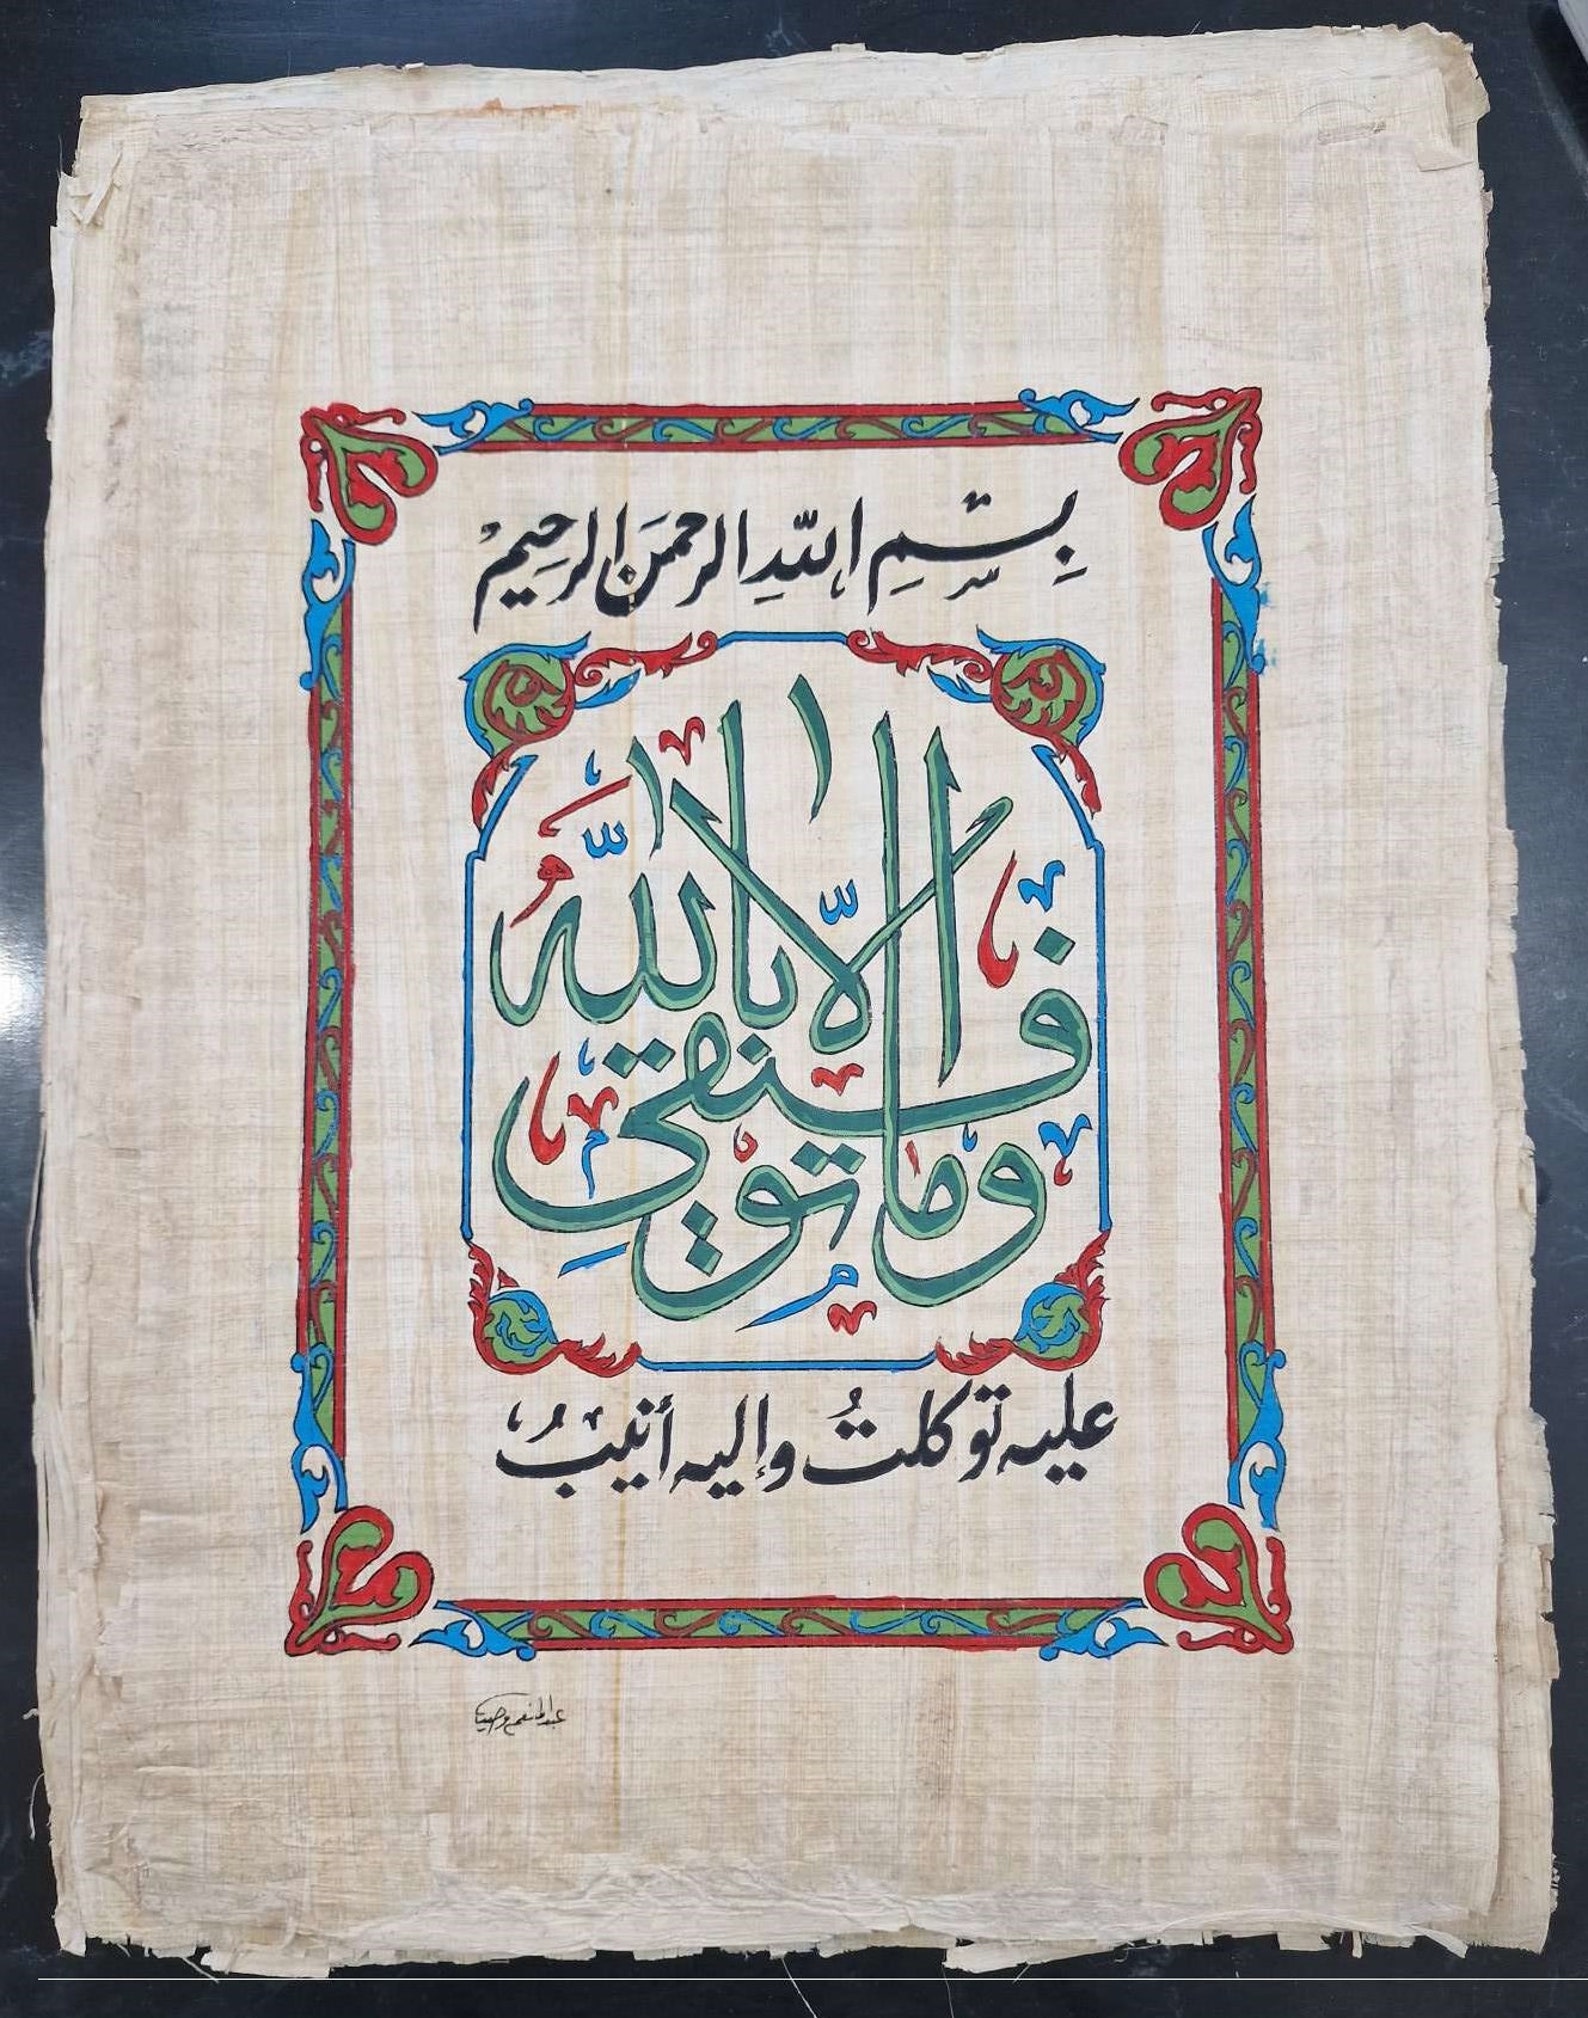 بِسْمِ اللّهِ الرحمَن الرحِيم
وَمَا تَوْفِيقِي الَّا بِاللَّهُ
عليه توكلتُ وإليه أنيبُ
عبد المنعم